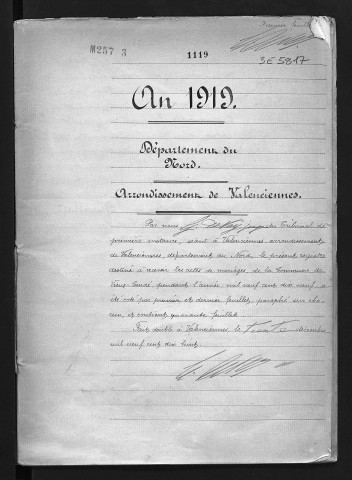 Premier feuillet
M257 3
1119
3E 5817
An 1919.
Département du
Nord.
Arrondissement de Valenciennes.
Par nous juge au Tribunal de
première instance, séant à Valenciennes arrondissement
de Valenciennes, département du Nord, le présent registre
destiné à recevoir les actes de mariages, de la Commune de
Vieux-Condé, pendant l'année mil neuf cent dix neuf, a
été coté par premier et dernier feuillet, paraphé sur cha-
cun, et contient quarante feuillets
Fait double à Valenciennes, le trente décembre
mil neuf cent dix huit.